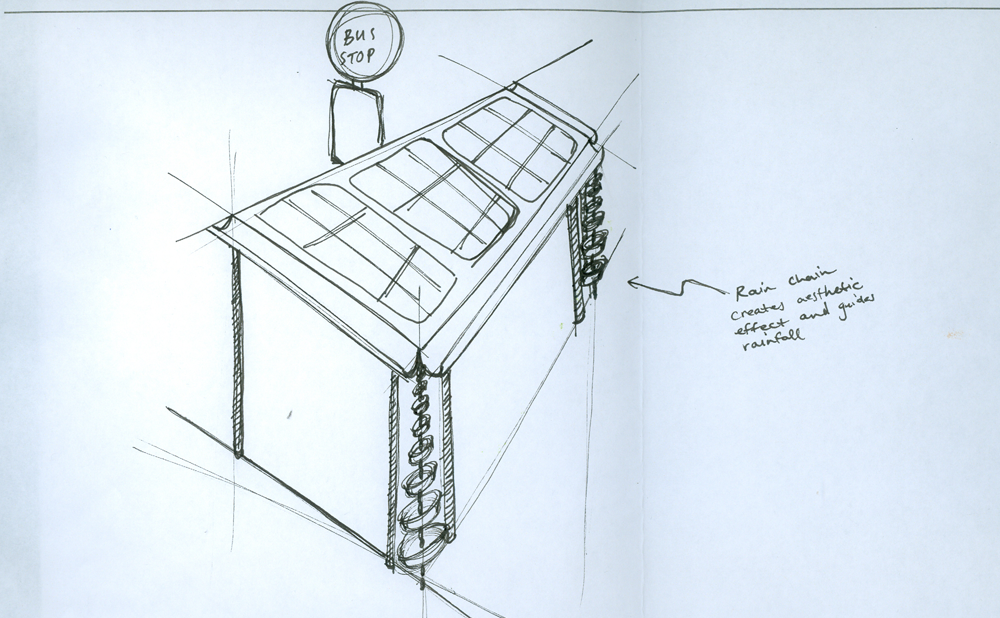 BUS
STOP
Rain chain
creates aesthetic
effect and guides
rainfall